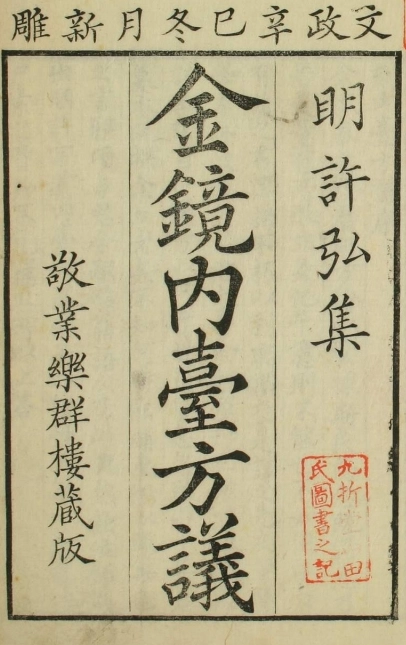 文政辛巳冬月新雕
明許弘集
金鏡内臺方議
敬業樂群樓藏版
九折堂山田
氏圖書之記